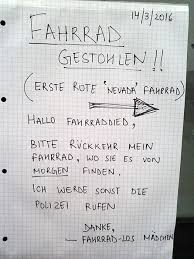 14/3/2016
FAHRRAD
GESTOHLEN!!
(ERSTE ROTE "NEVADA" FAHRRAD)
HALLO FAHRRADDIED,
BITTE RÜCKKEHR MEIN
FAHRRAD, WO SIE ES VON
MORGEN FINDEN.
ICH WERDE SONST DIE
POLIZEI RUFEN
DANKE,
– FAHRRAD-LOS MÄDCHEN